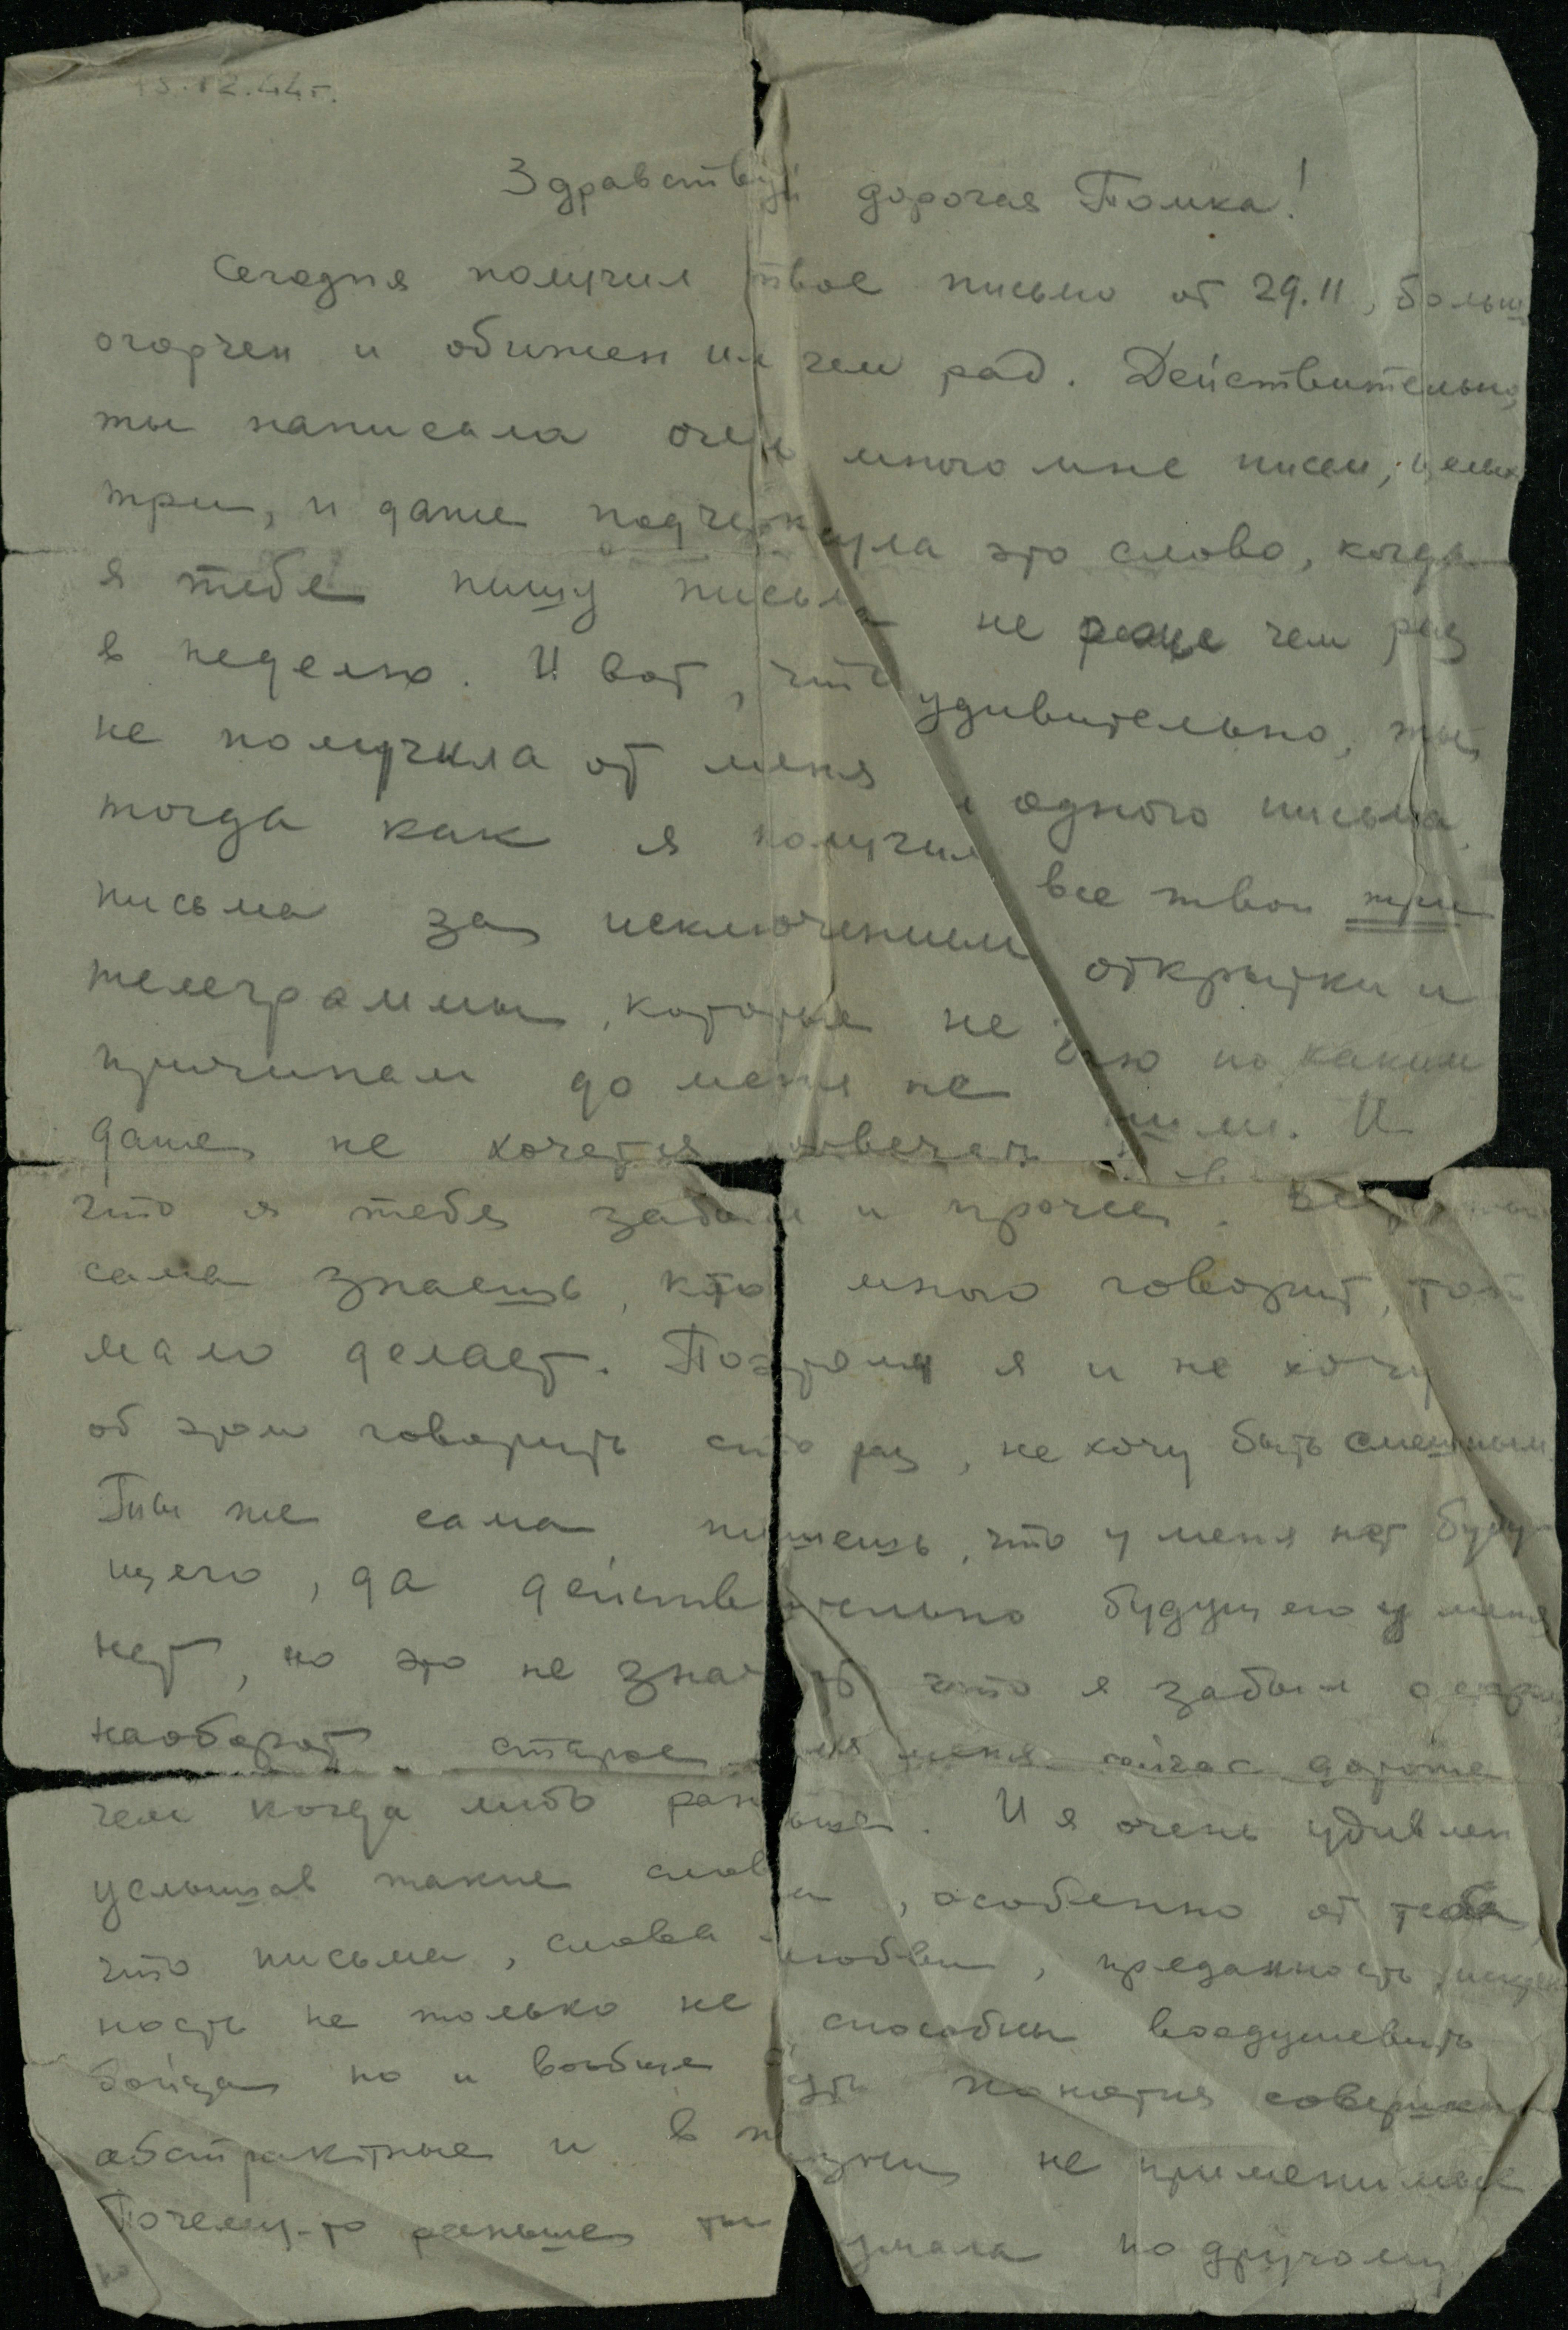 15.12.44г.
Здравствуй дорогая Томка!
Сегодня получил твое письмо от 29.11, больш
огорчен и обижен чем рад. Действительно,
ты написала очень много мне писем, целых
три, и даже подчеркнула это слово, когда
я тебе пишу письма не реже чем раз
в неделю. И вот, что удивительно, ты
не получила от меня и одного письма,
тогда как я получил все твои три
письма за исключением открытки и
телеграммы, которые не по каким
причинам до меня не И
даже не хочется отвечать
что я тебя забыл и прочее.
сама знаешь, кто много говорит, тот
мало делает. Поэтому я и не хочу
об этом говорить сто раз, не хочу быть смешным.
Ты же сама пишешь, что у меня нет буду-
щего, да действительно будущего у меня
нет, но это не значит что я забыл
наоборот, старое для меня сейчас дороже
чем когда либо раньше. И я очень удивлен
услышав такие слова, особенно от тебя,
что письма, слова любви, преданность, искрен
ность не только не способны воодушевить
бойца но и вообще понятия совершенно
абстрактные и в жизни не применимые
Почему-то раньше ты думала по другому